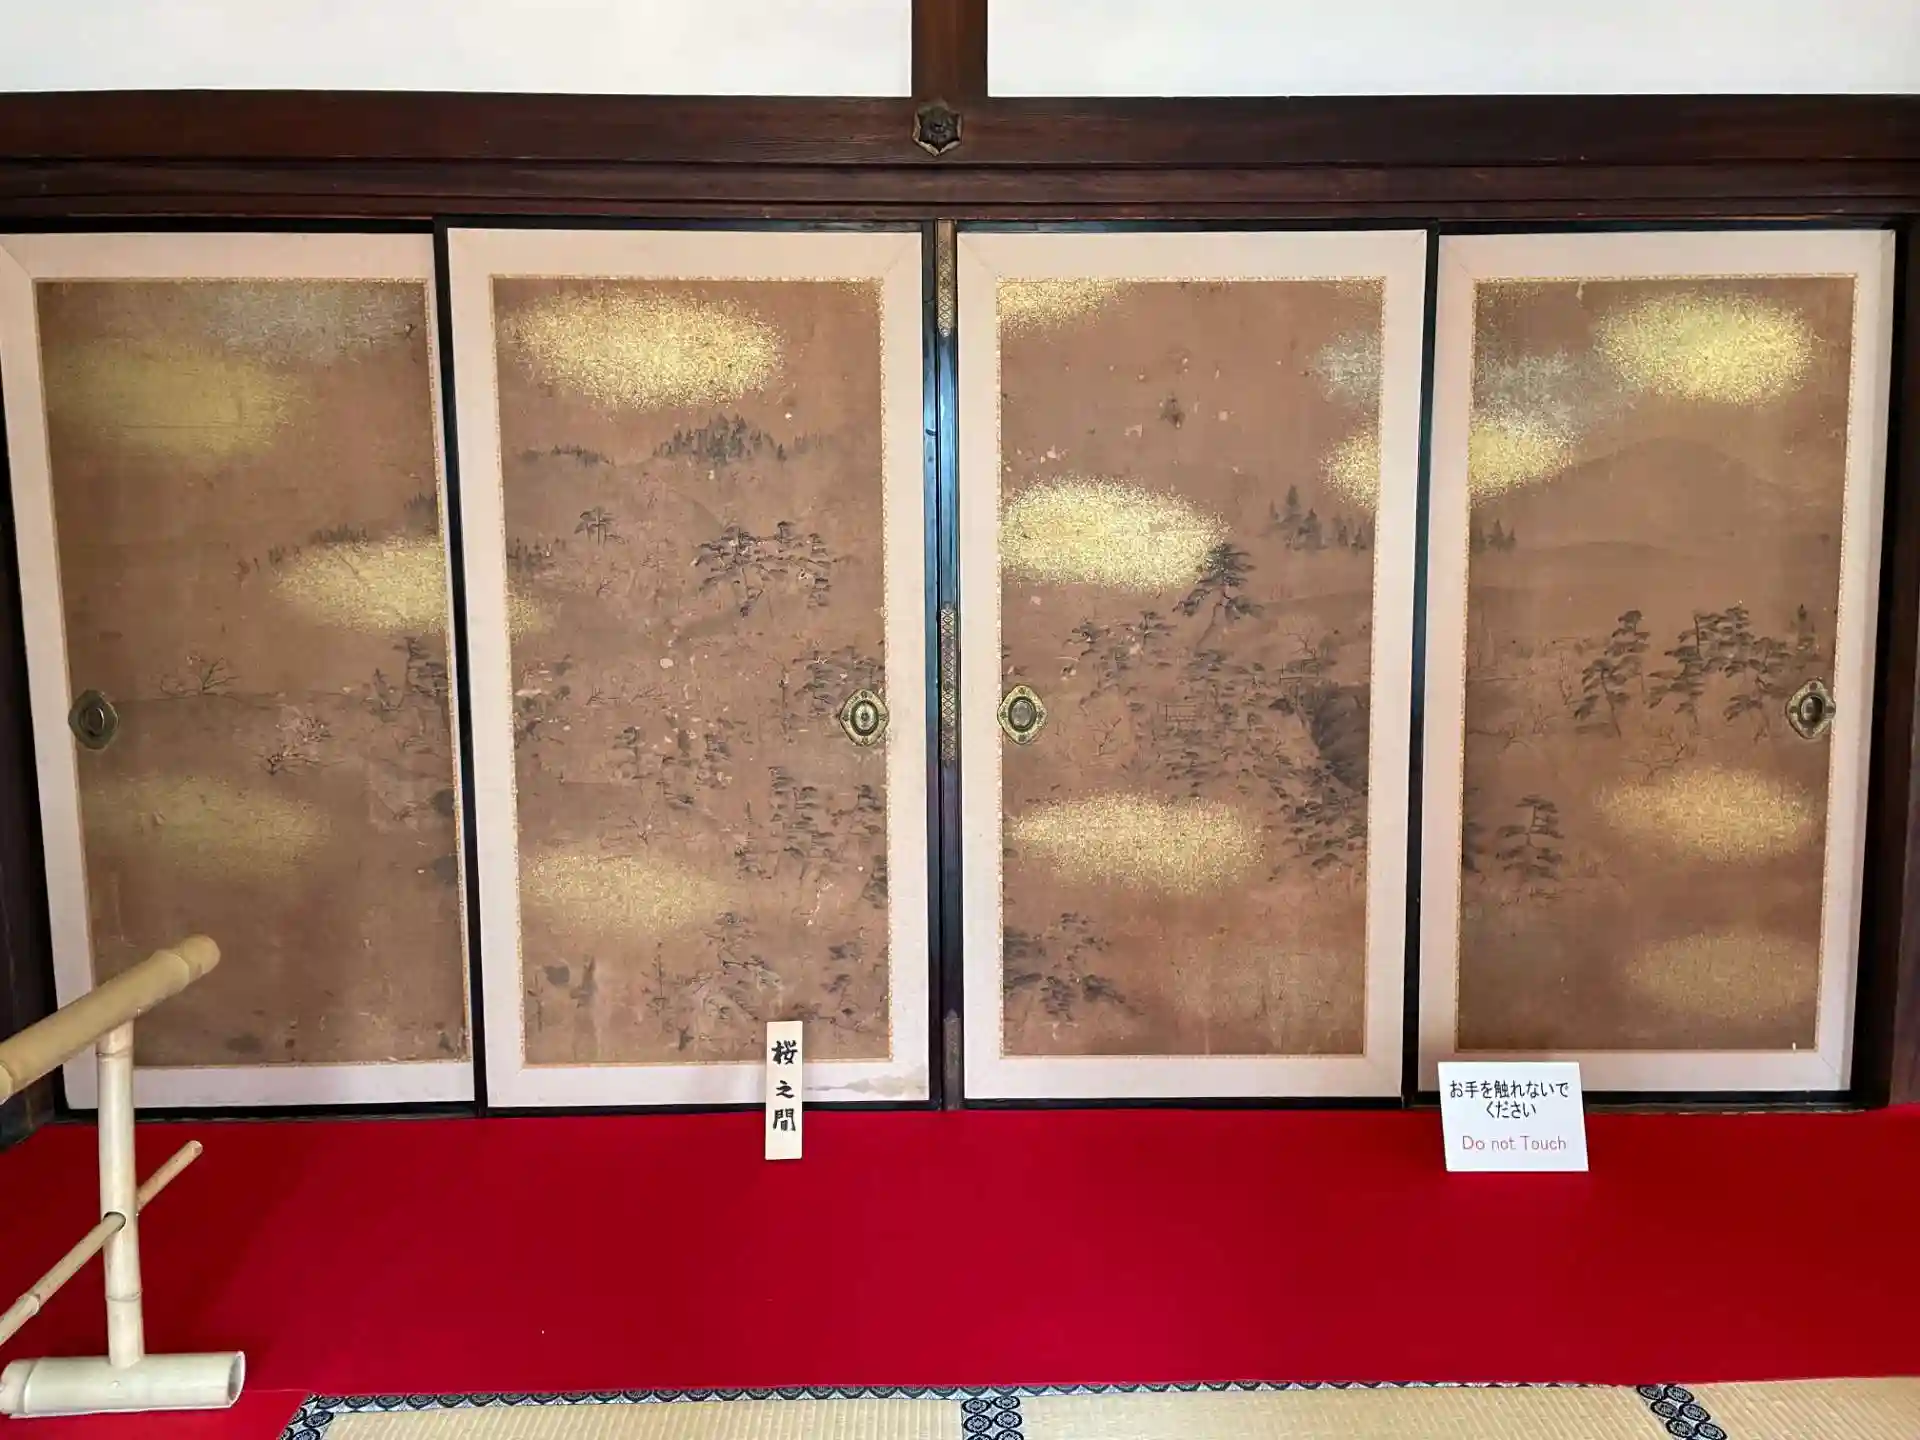 桜之間
お手を触れないで
ください
Do not Touch